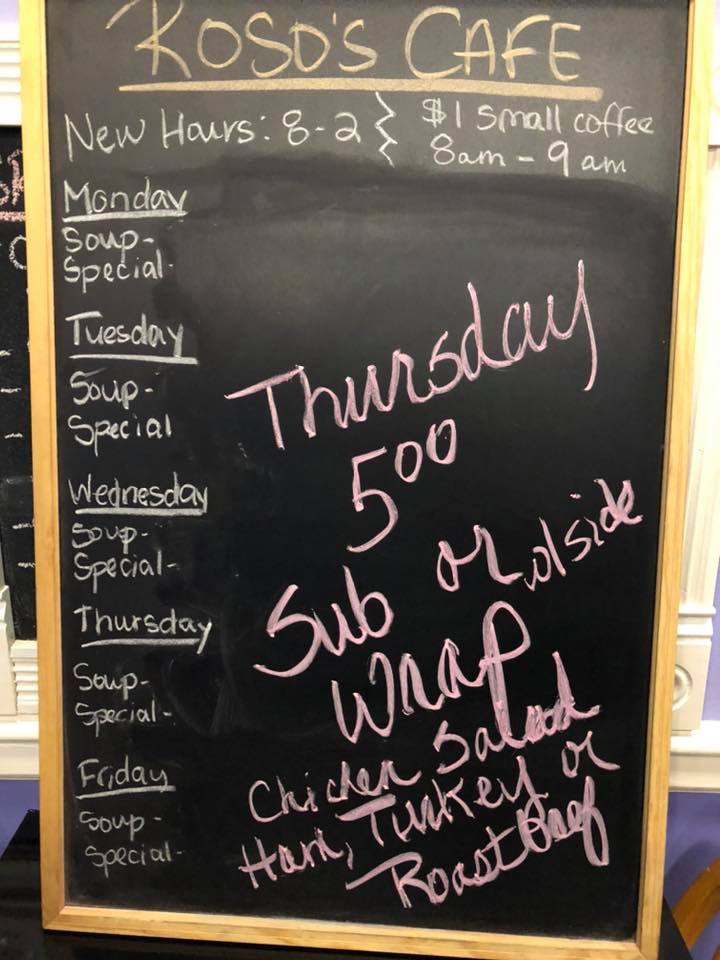 ROSO'S CAFE
New Hours: 8-2
$1 small coffee
8am - 9am
Monday
Soup-
Special-
Tuesday
Soup-
Special
Wednesday
Soup-
Special-
Thursday
Soup-
Special-
Friday
Soup-
Special-
Thursday
5⁰⁰
Sub or w/side
Wrap
Chicken Salad
Ham, Turkey or
Roast Beef